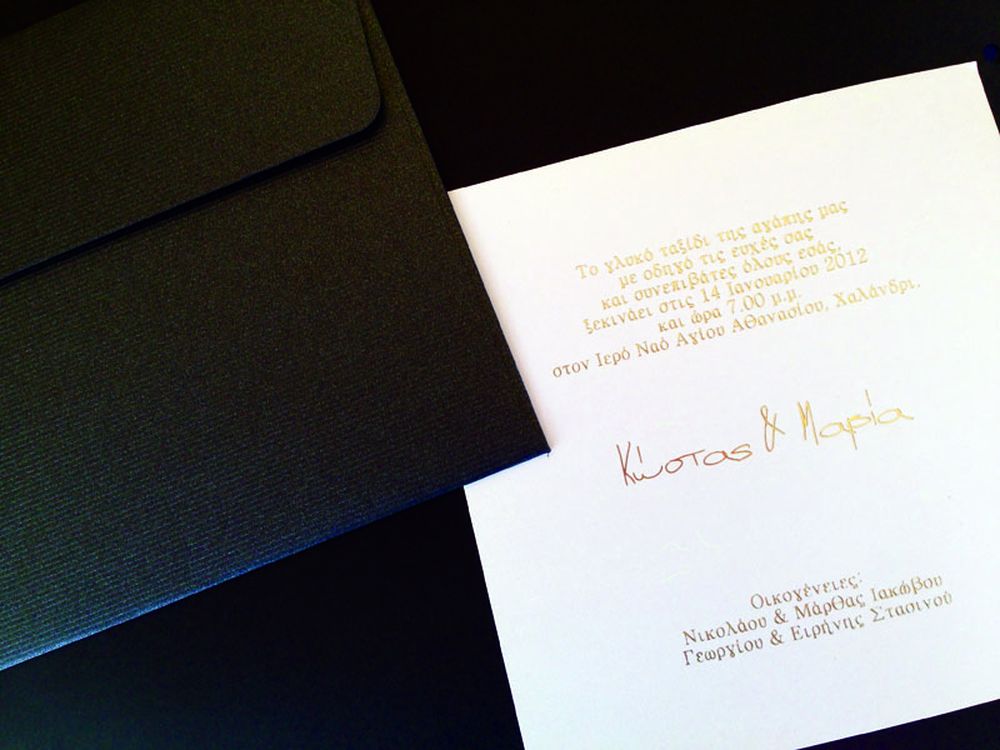 Το γλυκό ταξίδι της αγάπης μας
με οδηγό τις ευχές σας
και συνεπιβάτες όλους εσάς,
ξεκινάει στις 14 Ιανουαρίου 2012
και ώρα 7.00 μ.μ.
στον Ιερό Ναό Αγίου Αθανασίου, Χαλάνδρι.
Κώστας & Μαρία
Οικογένειες:
Νικολάου & Μάρθας Ιακώβου
Γεωργίου & Ειρήνης Στασινού